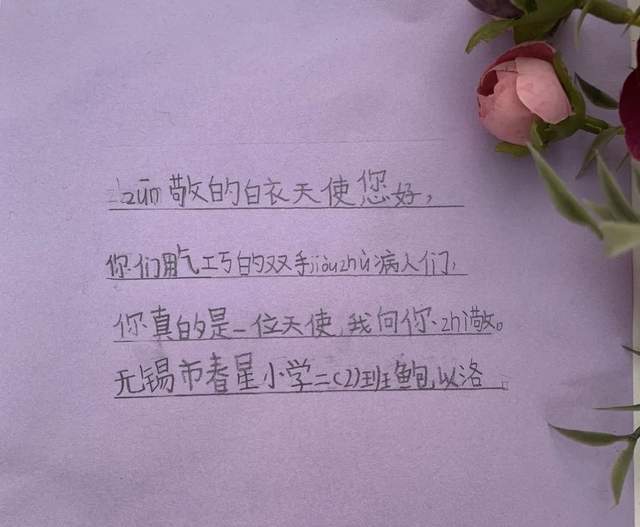 zūn敬的白衣天使您好，
你们用气工巧的双手jiùzhù病人们，
你真的是一位天使，我向你zhì敬。
无锡市春星小学二（2）班鲍以洛